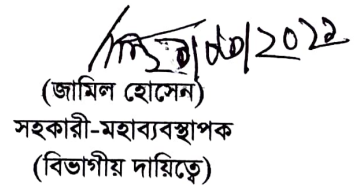 (জামিল হোসেন)
সহকারী-মহাব্যবস্থাপক
(বিভাগীয় দায়িত্বে)